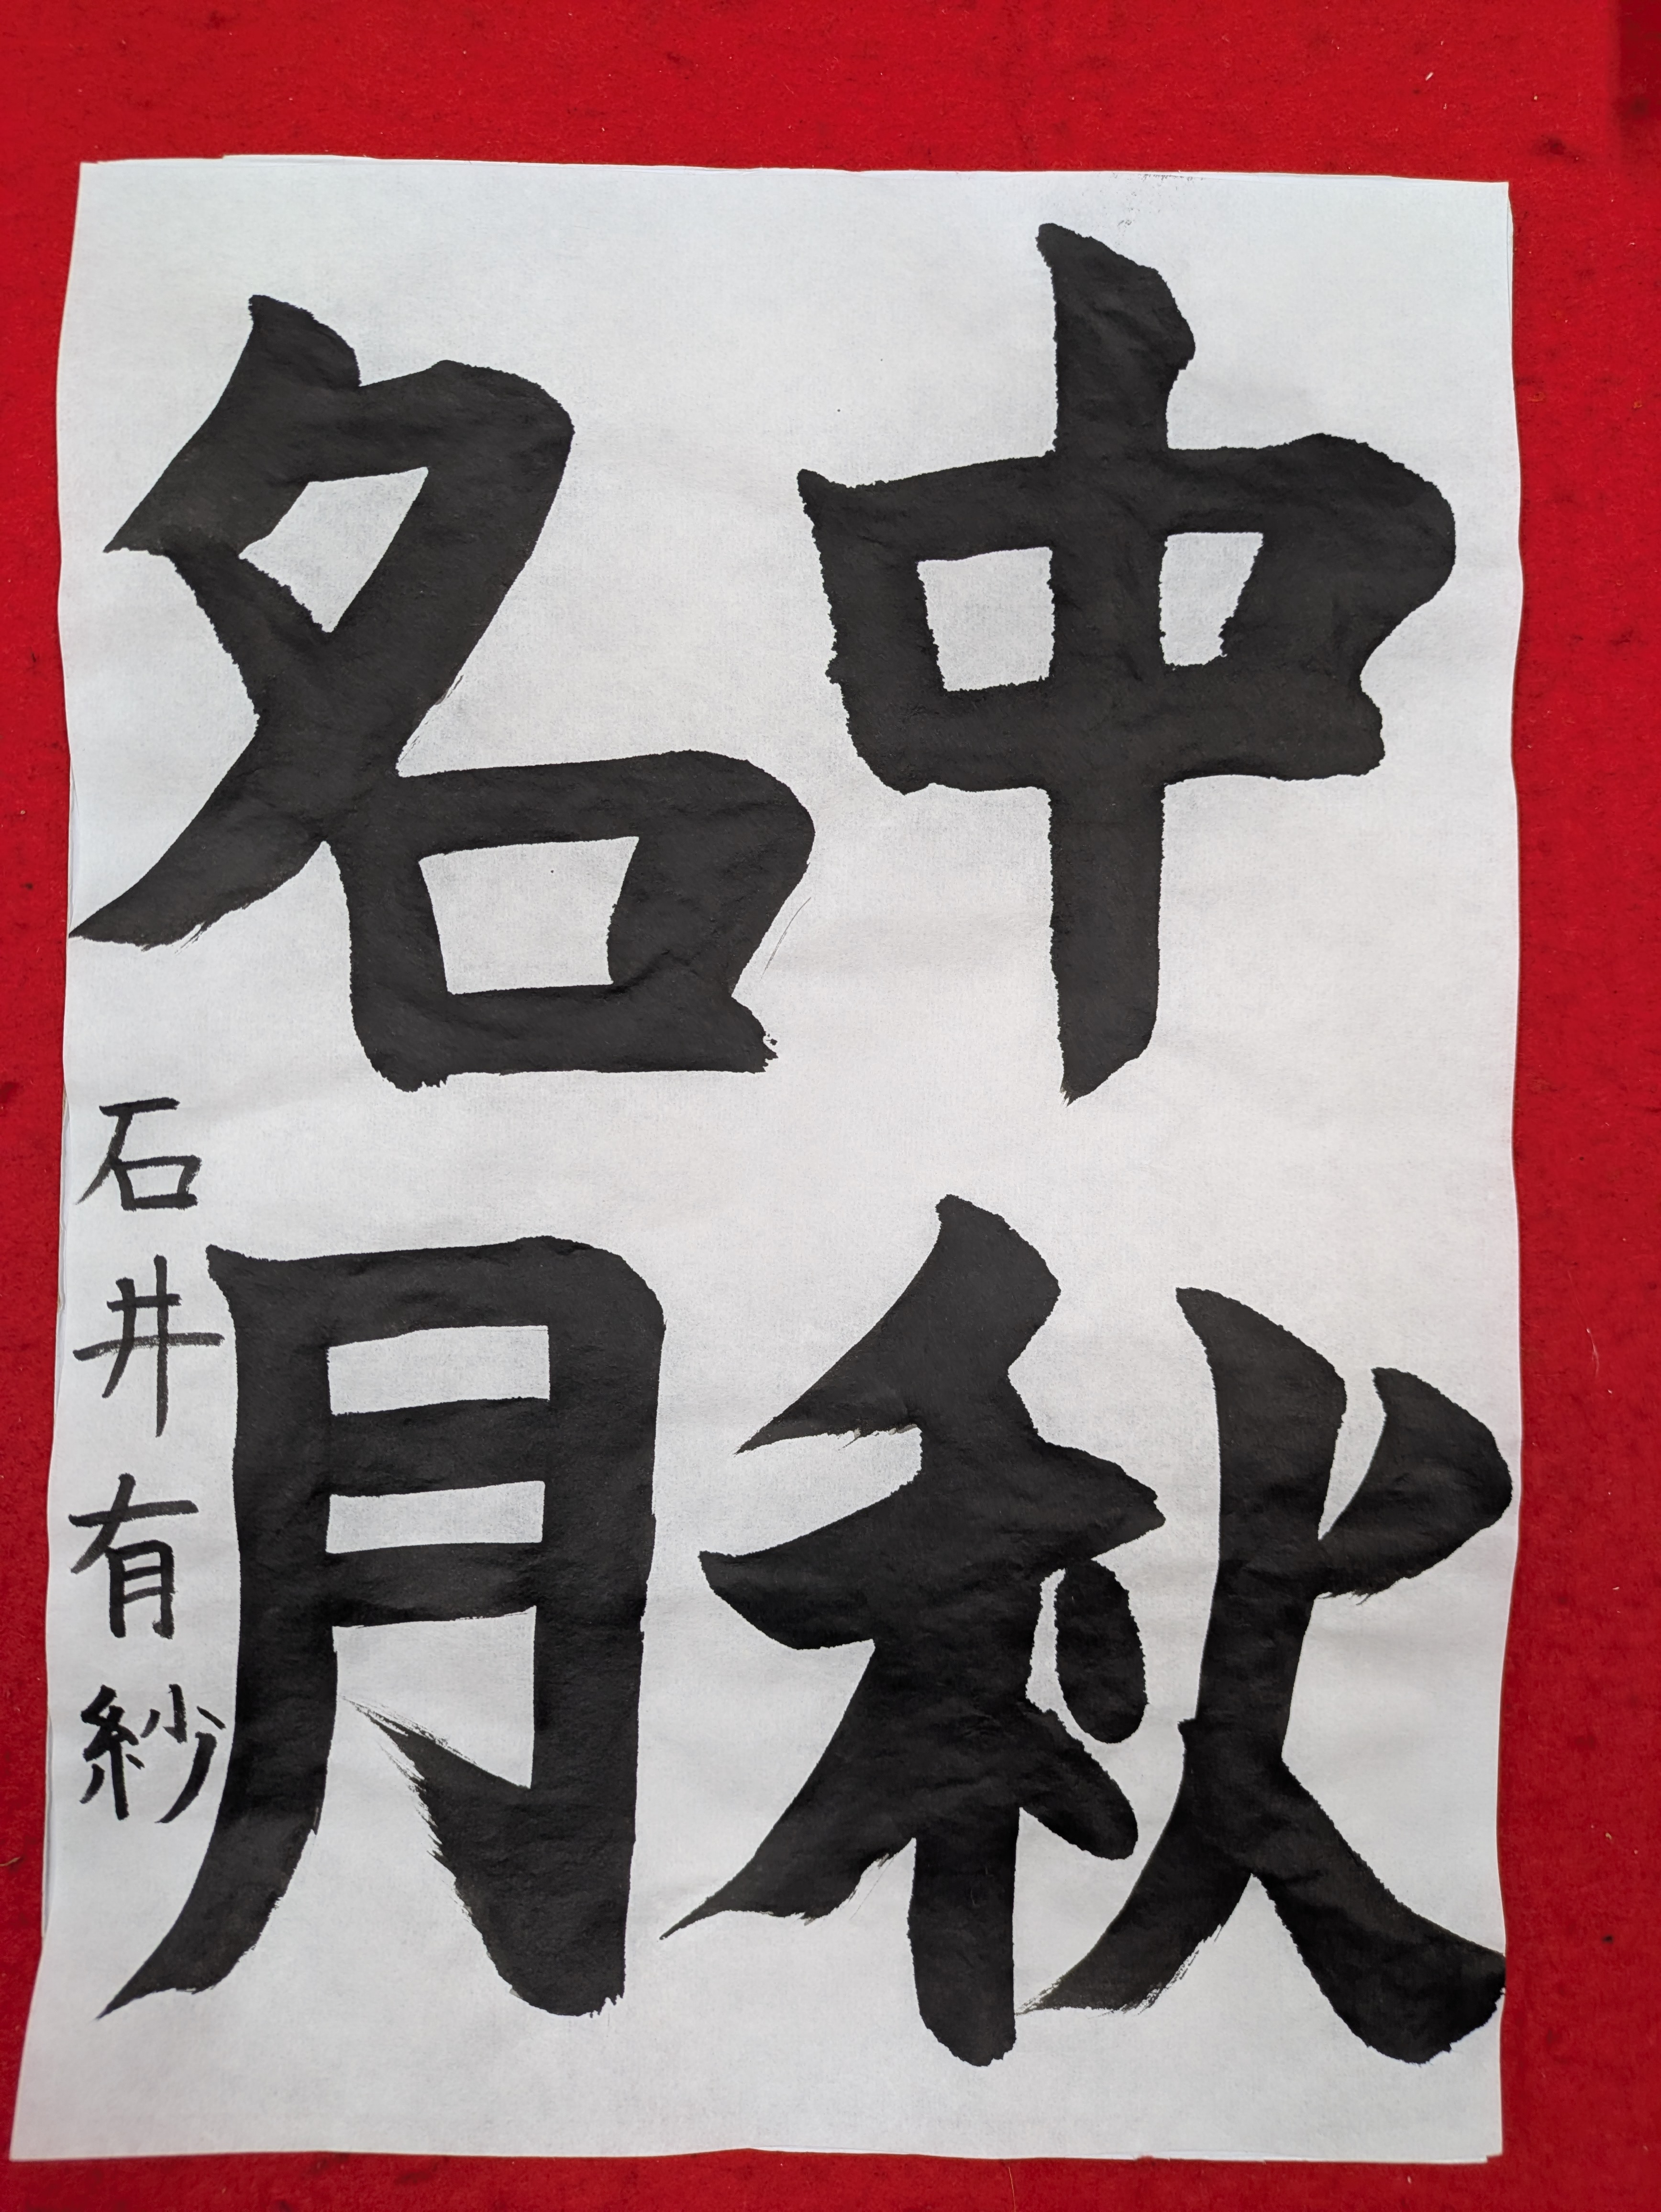 中秋
名月
石井有紗